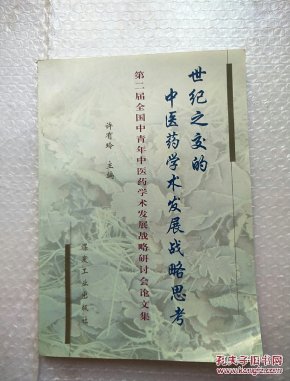 世纪之交的
中医药学术发展战略思考
第二届全国中青年中医药学术发展战略研讨会论文集
许有玲 主编
煤炭工业出版社
孔夫子旧书网